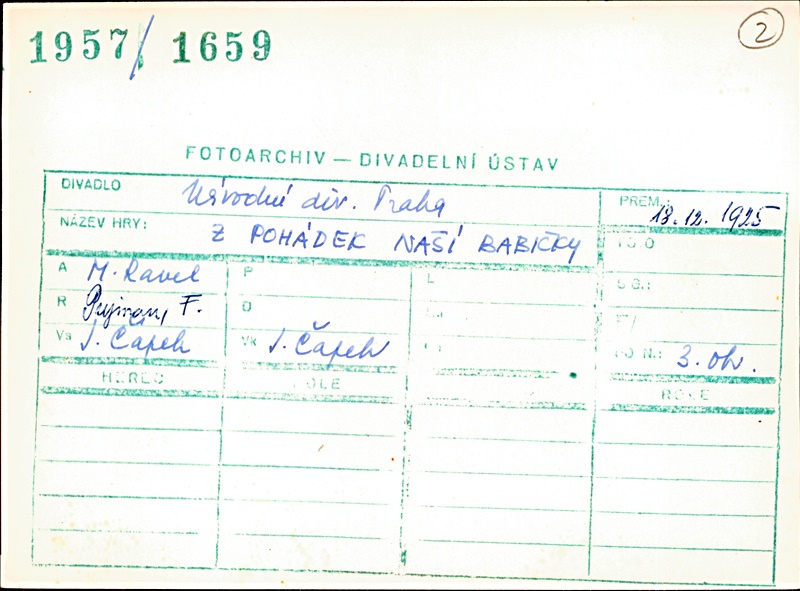 1957/1659
2
FOTOARCHIV — DIVADELNÍ ÚSTAV
DIVADLO Národní div. Praha
PREM.: 18.12.1925
NÁZEV HRY: Z POHÁDEK NAŠÍ BABIČKY
A M. Ravel P
R F. O
Vs J. Čapek Vk J. Čapek
3. obr.
HEREC ROLE